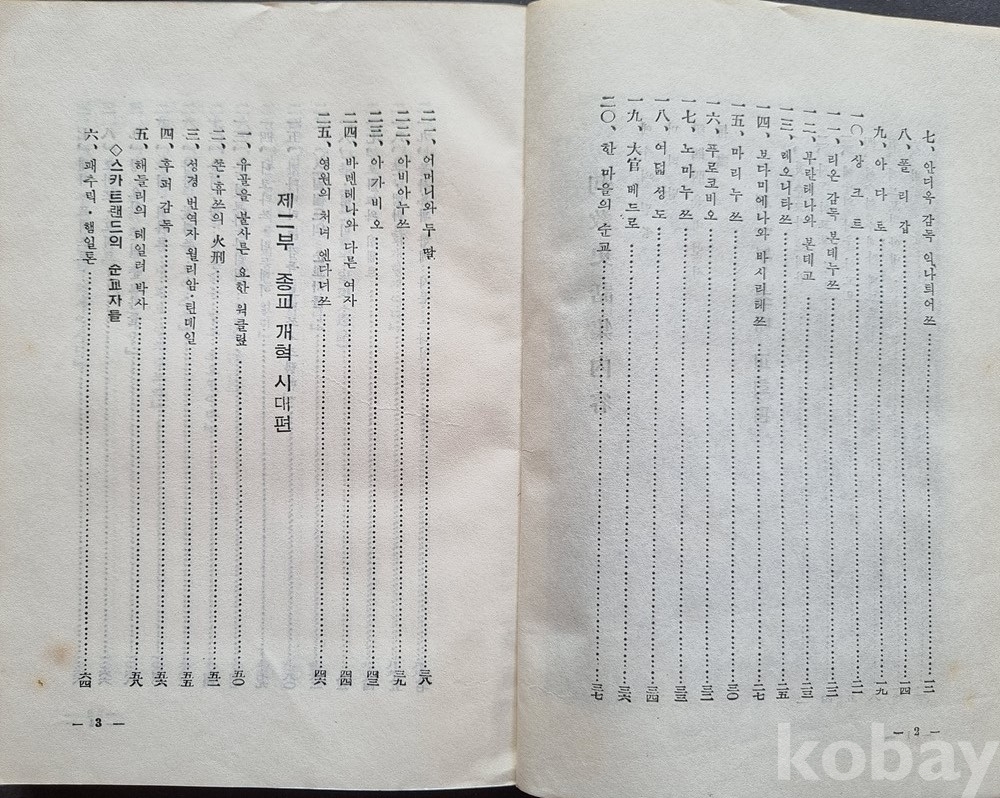 七、안더옥 감독 익나틔어쓰………一二
八、폴 리 갑………一四
九、아 다 로………一九
一〇、상 크 트………二一
一一、리온 감독 본데누쓰………二二
一二、부란테나와 본데고………二三
一三、레오니타쓰………二五
一四、보다미에나와 바시리테쓰………二七
一五、마 리 누 쓰………三〇
一六、푸로코비오………三二
一七、노 마 누 쓰………三三
一八、여 덟 성 도………三四
一九、大官 베 드 로………三六
二〇、한 마을의 순교………三七
— 2 —
二一、어머니와 두 딸………三八
二二、아비아누쓰………三九
二三、아 가 비 오………四三
二四、바렌테나와 다른 여자………四四
二五、영원의 처녀 엔다더쓰………四六
제二부 종교 개혁 시대편
一、유골을 불사른 요한 워클맆………五〇
二、쫀·휴쓰의 火刑………五二
三、성경 번역자 월리암·틴데일………五五
四、후퍼 감독………五六
五、해들리의 테일러 박사………五八
◇스카트랜드의 순교자들
六、패추릭·햄일톤………六四
— 3 —
kobay